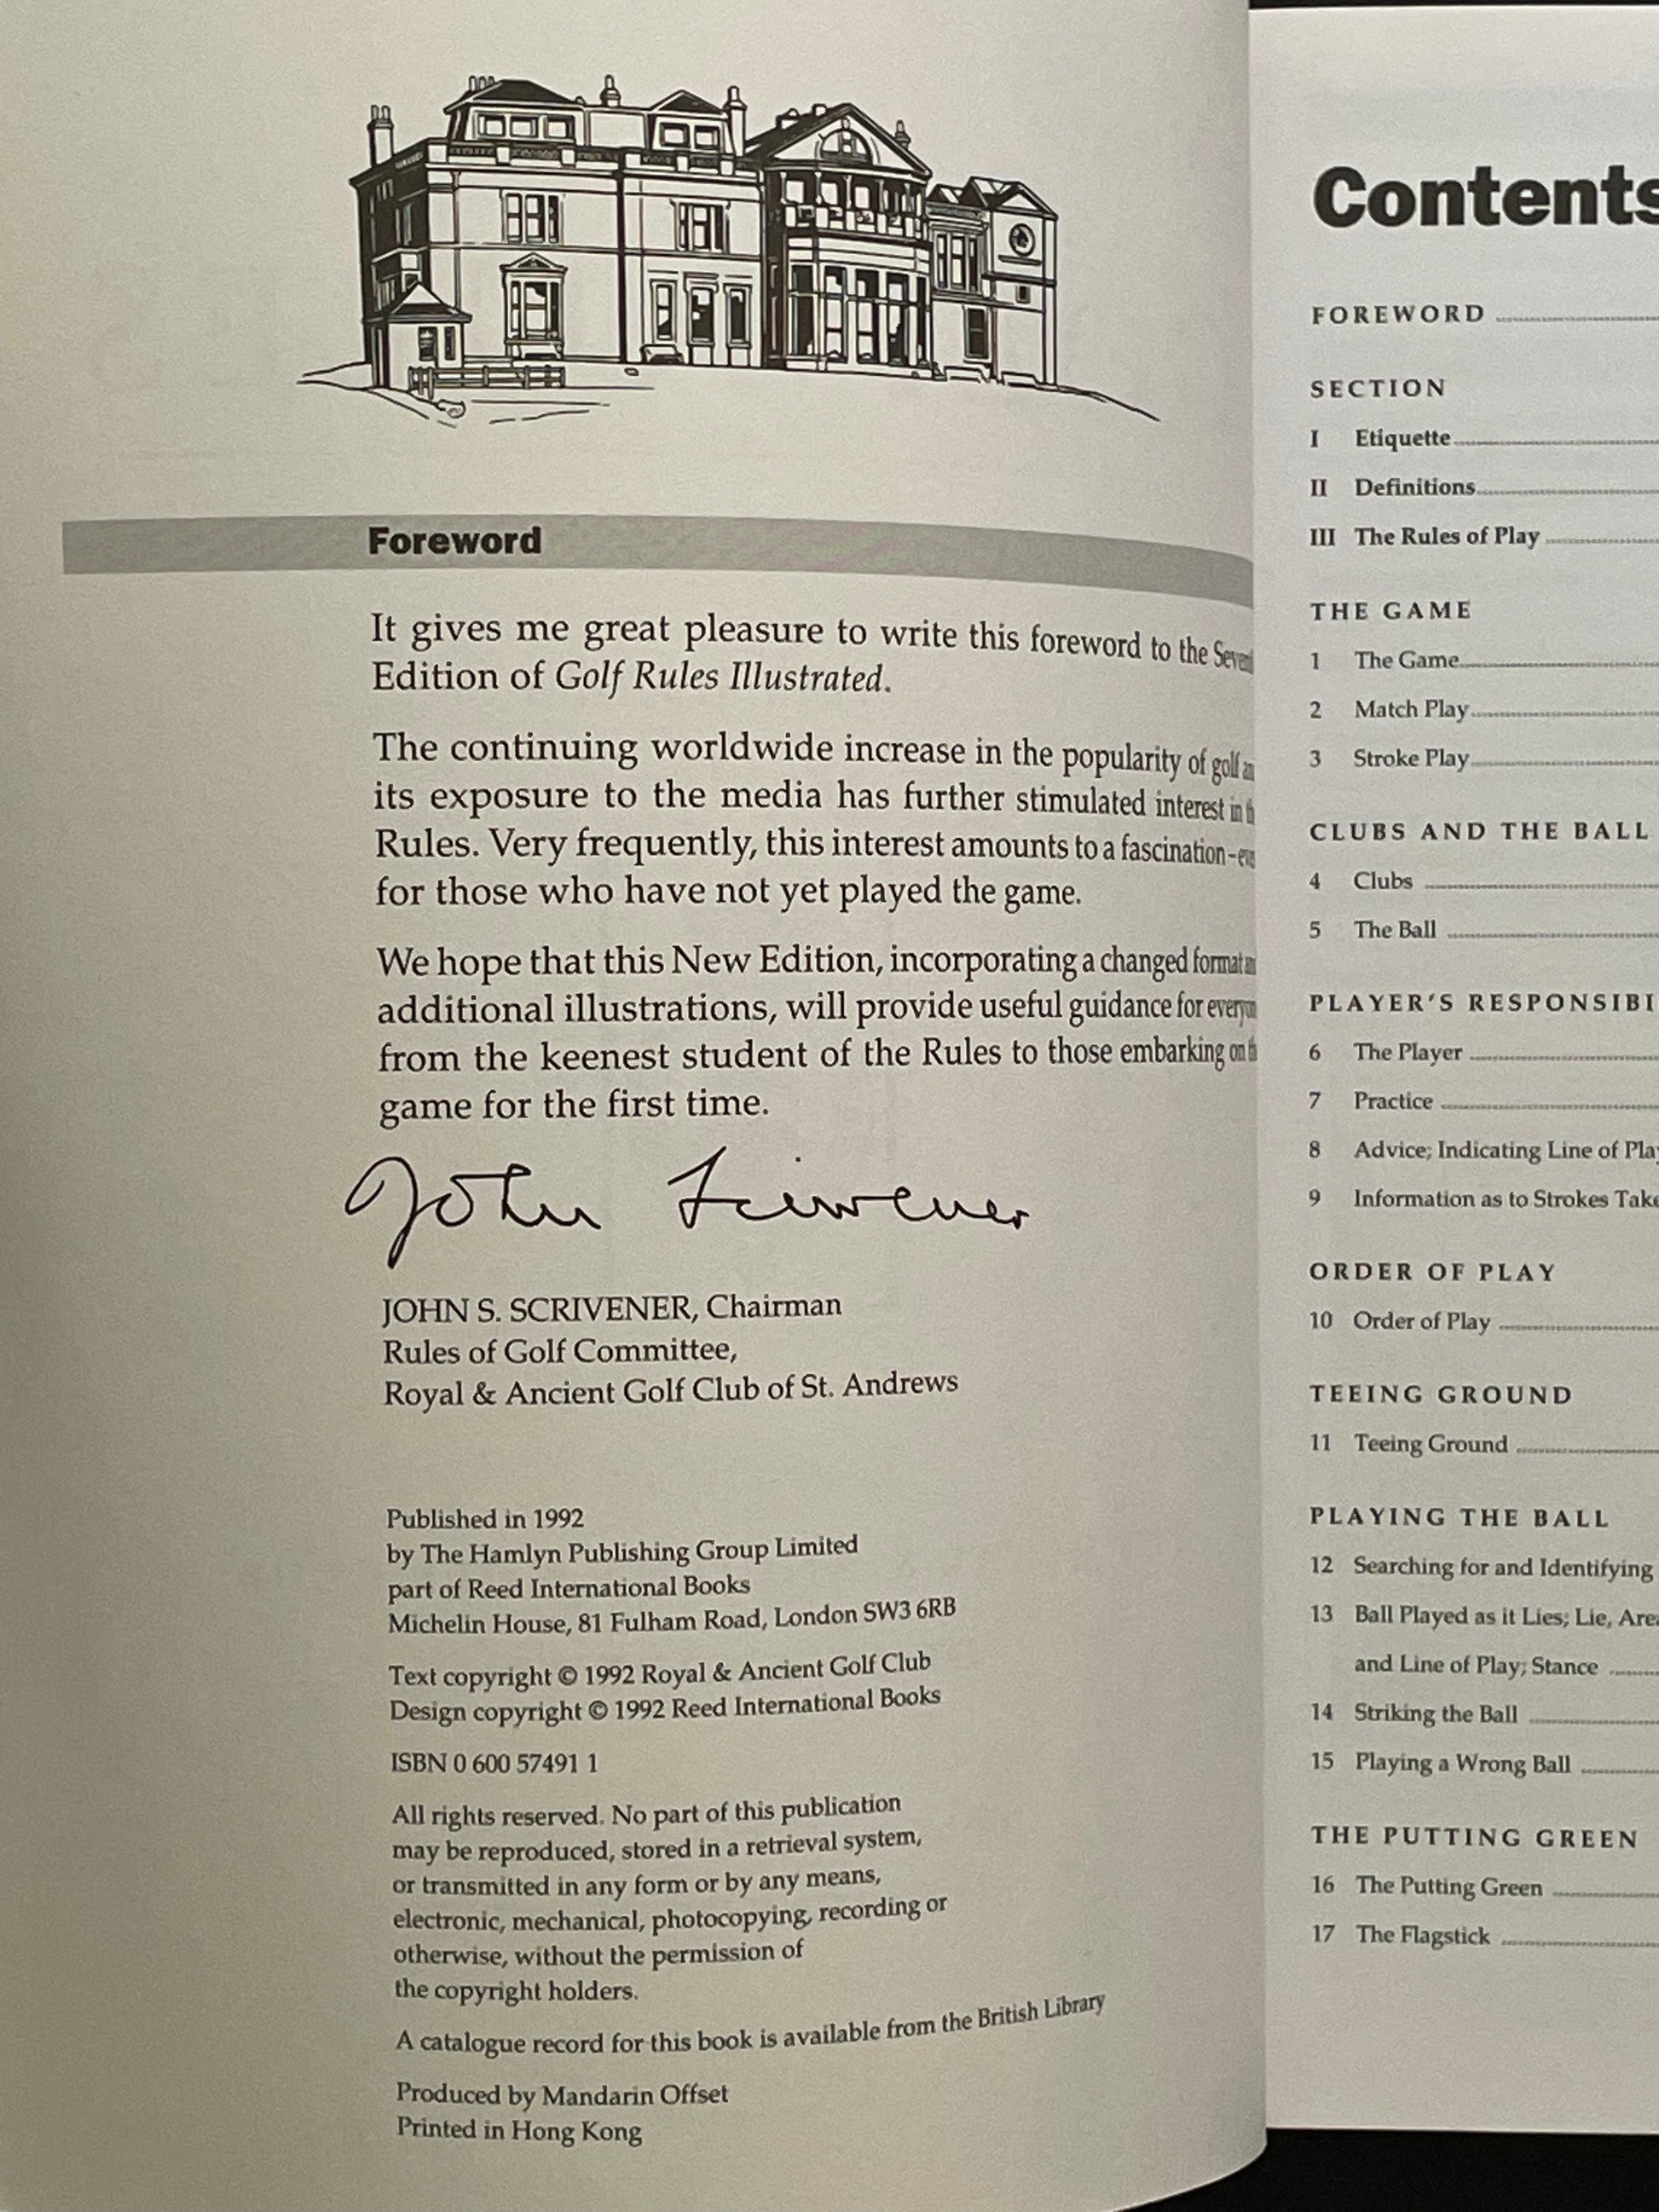 Foreword
It gives me great pleasure to write this foreword to the
Edition of Golf Rules Illustrated.
The continuing worldwide increase in the popularity of golf
its exposure to the media has further stimulated interest in
Rules. Very frequently, this interest amounts to a fascination–
for those who have not yet played the game.
We hope that this New Edition, incorporating a changed format
additional illustrations, will provide useful guidance for
from the keenest student of the Rules to those embarking on
game for the first time.
John Scrivener
JOHN S. SCRIVENER, Chairman
Rules of Golf Committee,
Royal & Ancient Golf Club of St. Andrews
Published in 1992
by The Hamlyn Publishing Group Limited
part of Reed International Books
Michelin House, 81 Fulham Road, London SW3 6RB
Text copyright © 1992 Royal & Ancient Golf Club
Design copyright © 1992 Reed International Books
ISBN 0 600 57491 1
All rights reserved. No part of this publication
may be reproduced, stored in a retrieval system,
or transmitted in any form or by any means,
electronic, mechanical, photocopying, recording or
otherwise, without the permission of
the copyright holders.
A catalogue record for this book is available from the British Library
Produced by Mandarin Offset
Printed in Hong Kong
Contents
FOREWORD
SECTION
I Etiquette
II Definitions
III The Rules of Play
THE GAME
1 The Game
2 Match Play
3 Stroke Play
CLUBS AND THE BALL
4 Clubs
5 The Ball
PLAYER'S RESPONSIBI
6 The Player
7 Practice
8 Advice; Indicating Line of Play
9 Information as to Strokes Take
ORDER OF PLAY
10 Order of Play
TEEING GROUND
11 Teeing Ground
PLAYING THE BALL
12 Searching for and Identifying
13 Ball Played as it Lies; Lie, Area
and Line of Play; Stance
14 Striking the Ball
15 Playing a Wrong Ball
THE PUTTING GREEN
16 The Putting Green
17 The Flagstick